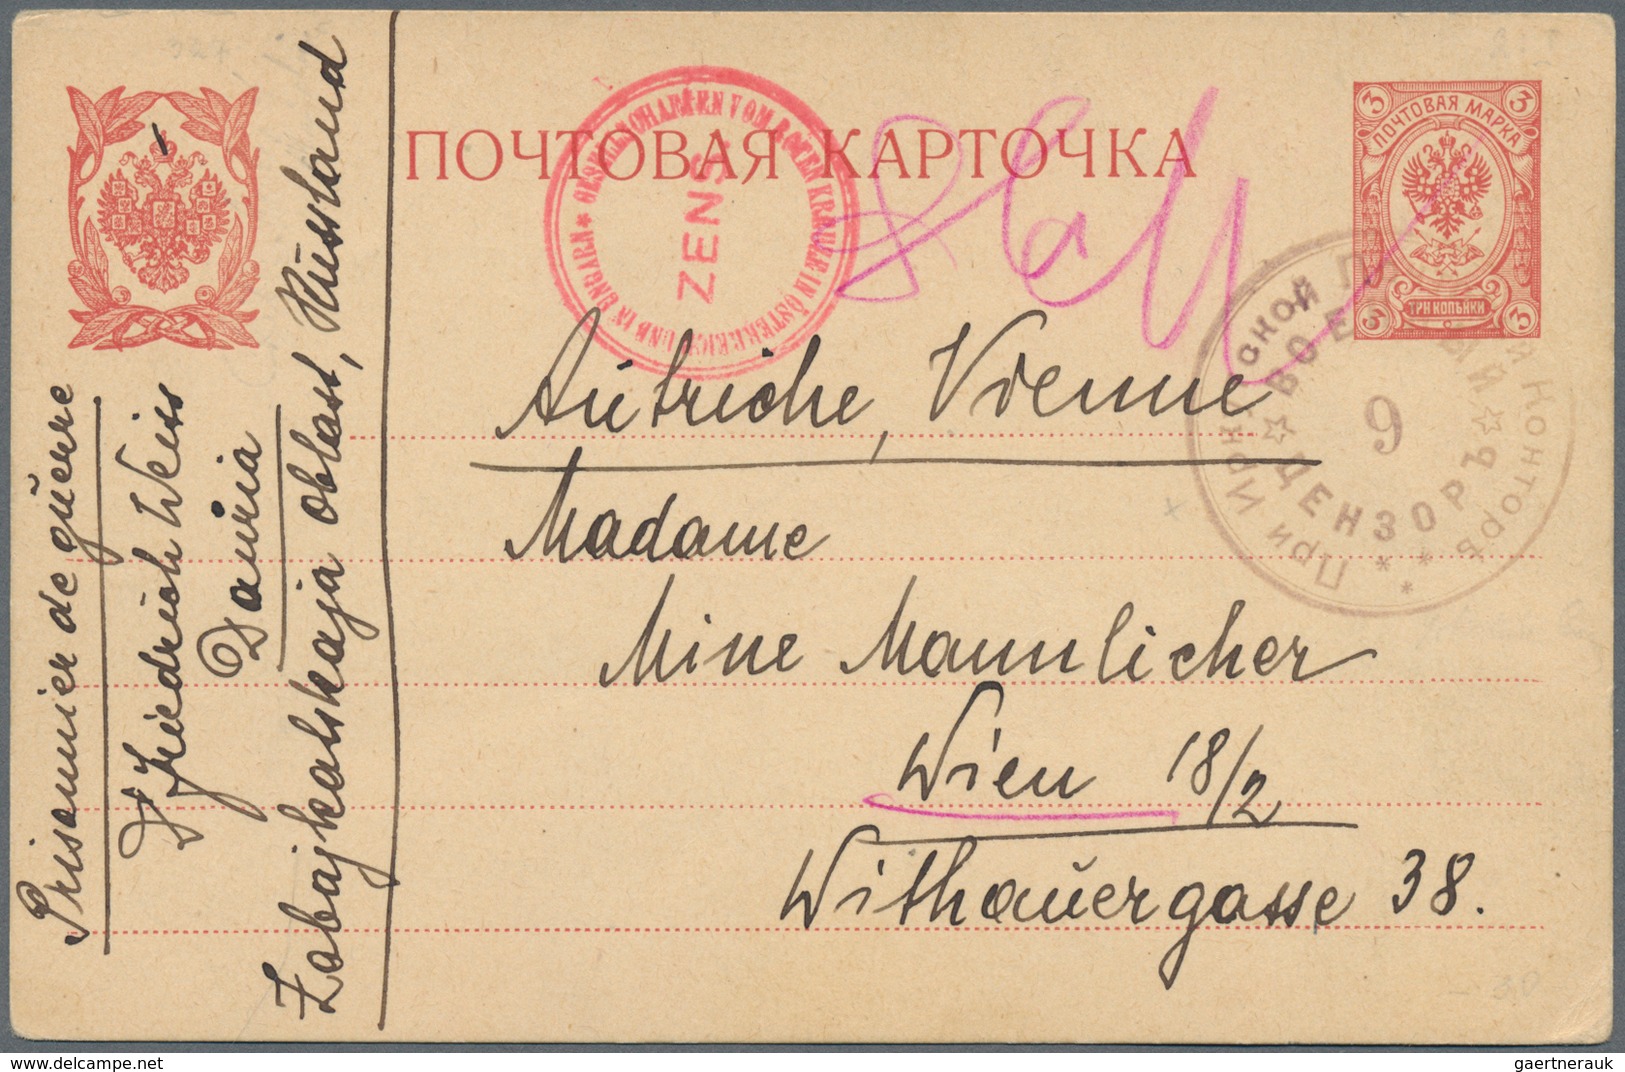 ПОЧТОВАЯ КАРТОЧКА
3 ПОЧТОВАЯ МАРКА 3
3 ТРИ КОПѢЙКИ 3
GESELLSCHAFTEN VOM ROTEN KREUZE IN ÖSTERREICH UND IN UNGARN *
ZENS
При Ирк ской П й Конторѣ * *
ВОЕ Й ☆ ЦЕНЗОРЪ ☆ *
9
Prisonnier de guerre
Friedrich Weiss
Dauria
Zabajkalskaja oblast, Russland
Autriche, Vienne
Madame
Mine Mannlicher
Wien 18/2
Withauergasse 38.
gaertnerauk @ delcampe.net